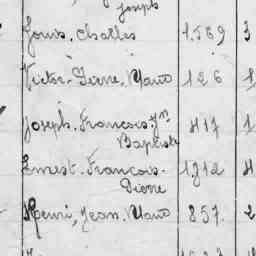 Joseph
Louis, Charles 1.569 3
Victor. Pierre. Marie 126 1
Joseph. François. Jn 417 1
Baptiste
Ernest. François. 1.312 4
Pierre
Henri, Jean. Marie 857. 2